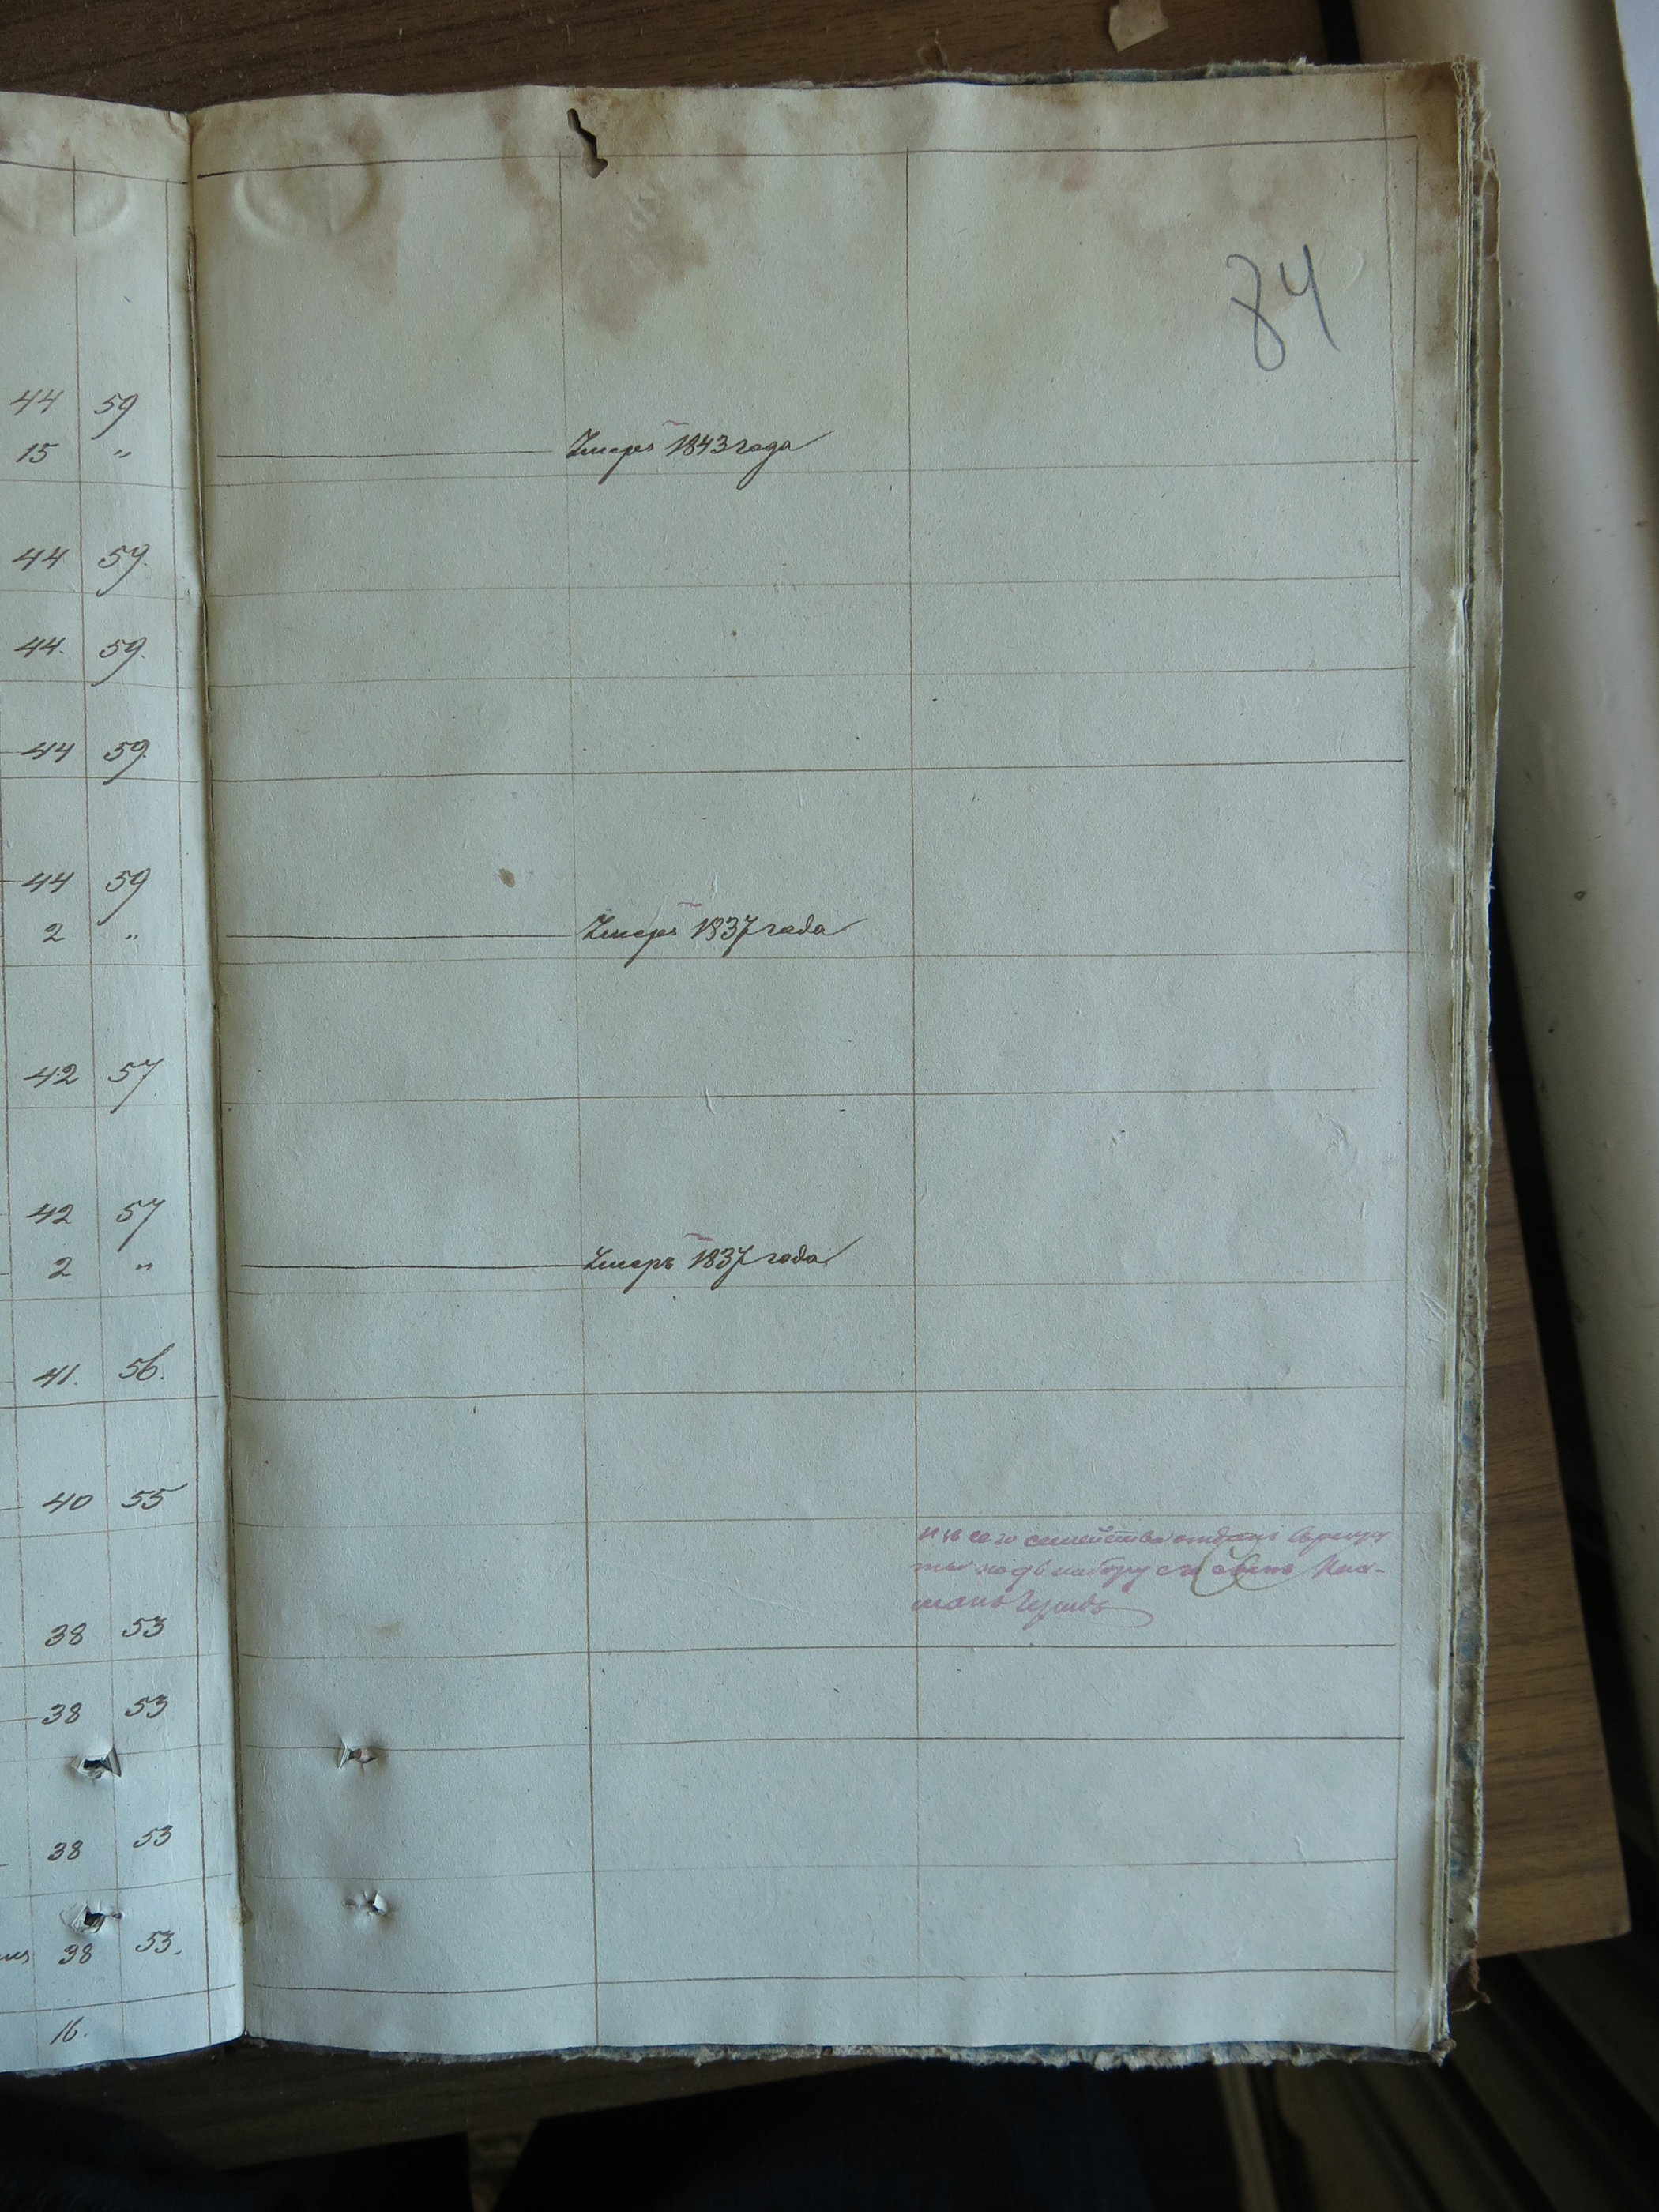 84
44 59
15 " Умеръ 1843 года
44 59.
44. 59.
44 59.
44 59
2 " Умеръ 1837 года
42 57.
42 57
2 " Умеръ 1837 года
41. 56.
40 55
семейства отданъ
его сынъ
38 53
38 53
38 53
38 53.
16.